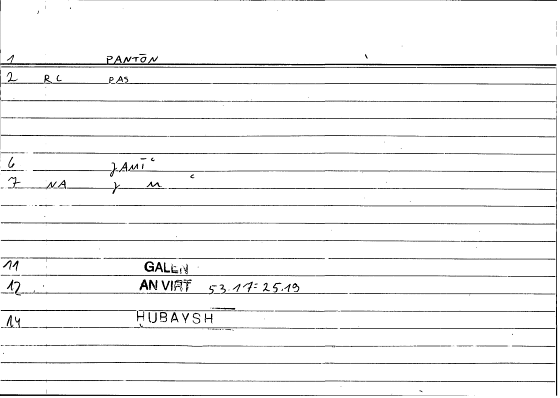 1 PANTŌN
2 RC PAS
6 ǧAMĪʿ
7 NA ǧ M ʿ
11 GALEN
12 AN VIRT 53.17:25.19
14 HUBAYSH